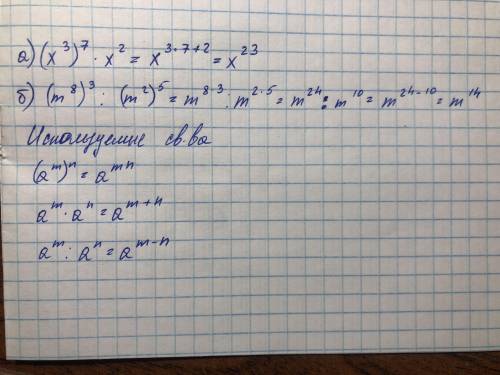 а) (x³)⁷ · x² = x³·⁷⁺² = x²³
б) (m⁸)³ : (m²)⁵ = m⁸·³ : m²·⁵ = m²⁴ : m¹⁰ = m²⁴⁻¹⁰ = m¹⁴
Используемые св-ва
(aᵐ)ⁿ = aᵐⁿ
aᵐ · aⁿ = aᵐ⁺ⁿ
aᵐ : aⁿ = aᵐ⁻ⁿ